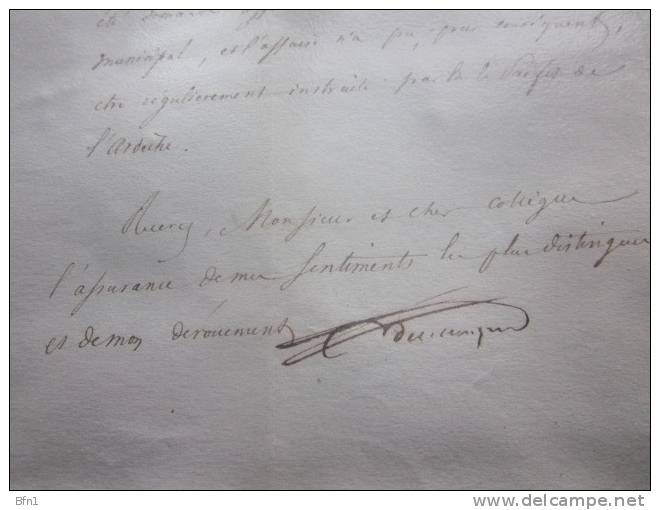 été demandé
municipal, et l'affaire n'a pu, par conséquent,
etre régulierement instruite par M. le Préfet de
l'Ardèche.
Monsieur et cher collègue
l'assurance de mes sentiments les plus distingués
et de mon dévouement
Bfn1
www.delcampe.net